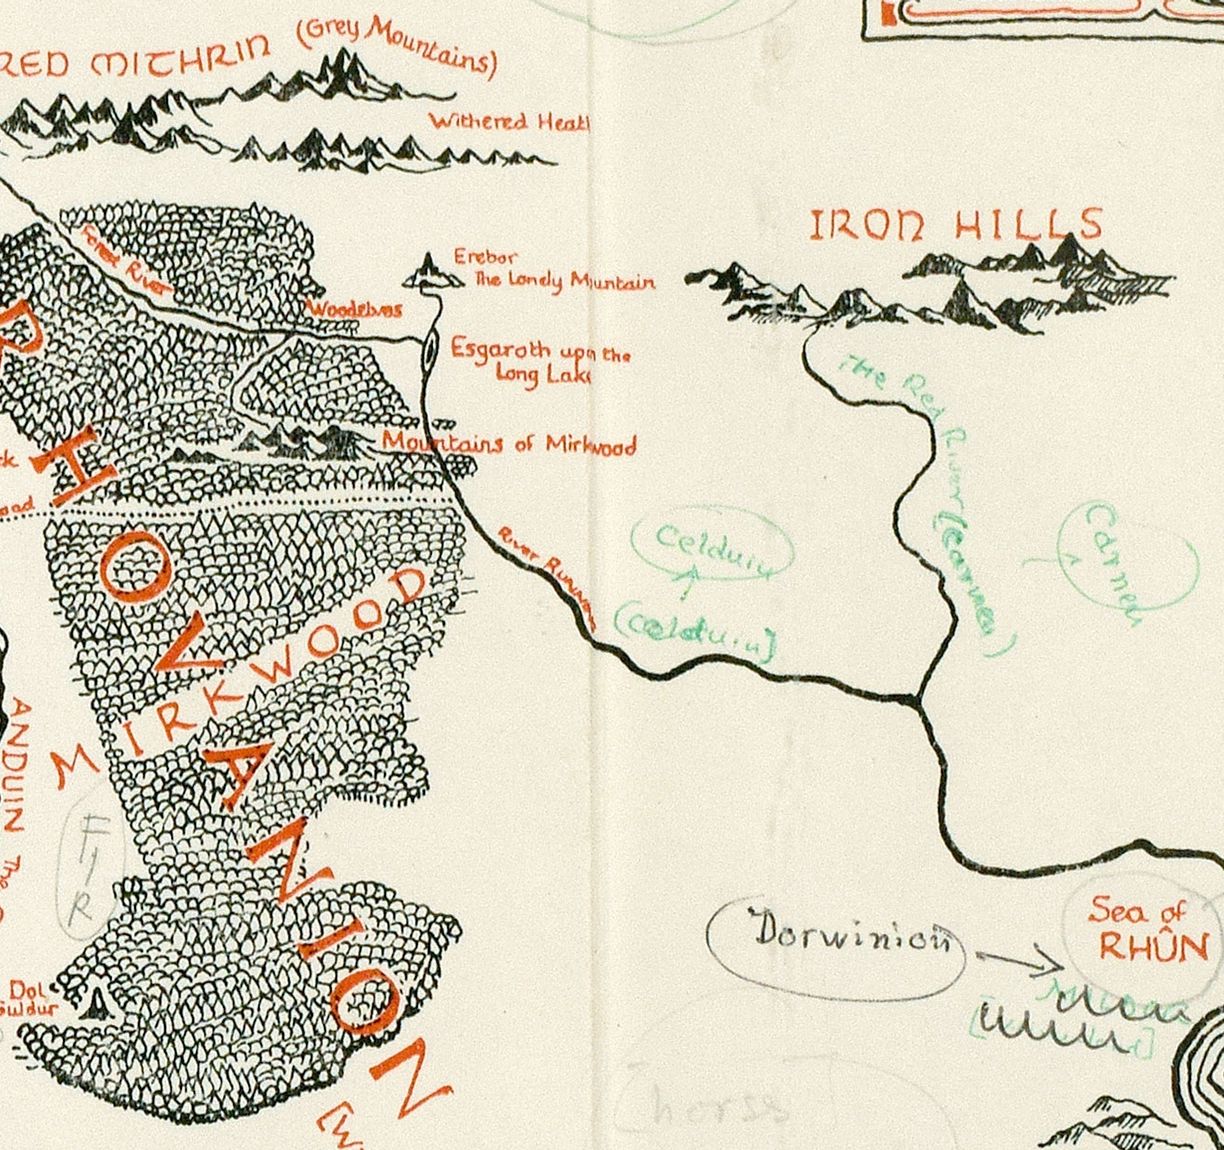 RED MITHRIN (Grey Mountains)
Withered Heath
IRON HILLS
Forest River
Erebor
The Lonely Muntain
Woodelves
Esgaroth upon the
Long Lake
The Red River (Carnen)
Mountains of Mirkwood
River Running
Celduin
(Celduin)
Carnen
RHOVANION
MIRKWOOD
ANDUIN The
FIR
Dorwinion
Sea of
RHÛN
Dol
Guldur
horss